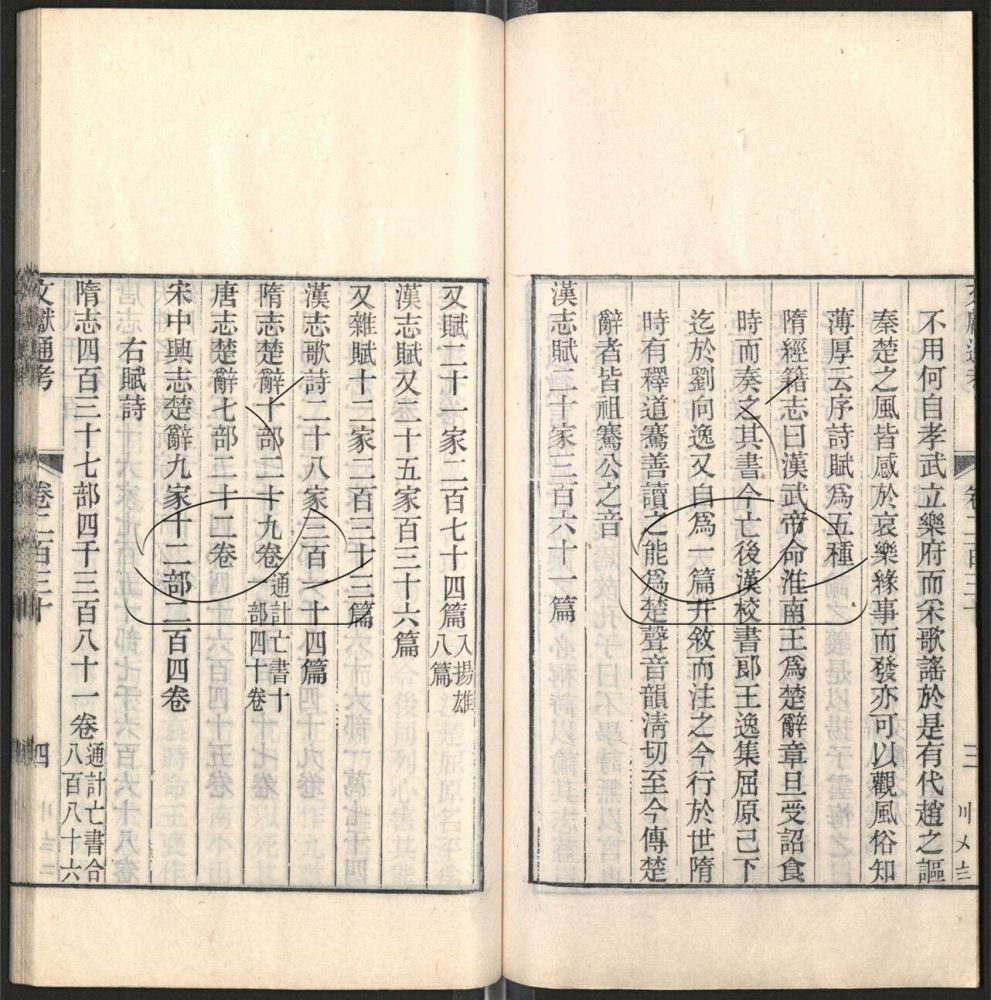 不用何自孝武立樂府而采歌謠於是有代趙之謳
秦楚之風皆感於哀樂緣事而發亦可以觀風俗知
薄厚云序詩賦爲五種
隋經籍志曰漢武帝命淮南王爲楚辭章旦受詔食
時而奏之其書今亡後漢校書郎王逸集屈原已下
迄於劉向逸又自爲一篇并敘而注之今行於世隋
時有釋道騫善讀之能爲楚聲音韻淸切至今傳楚
辭者皆祖騫公之音
漢志賦二十家三百六十一篇
又賦二十一家二百七十四篇入揚雄八篇
漢志賦又二十五家百三十六篇
又雜賦十二家二百三十三篇
漢志歌詩二十八家三百一十四篇
隋志楚辭十部二十九卷通計亡書十一部四十卷
唐志楚辭七部三十二卷
宋中興志楚辭九家十二部二百四卷
右賦詩
隋志四百三十七部四千三百八十一卷通計亡書合八百八十六
文獻通考 卷二百三十 四